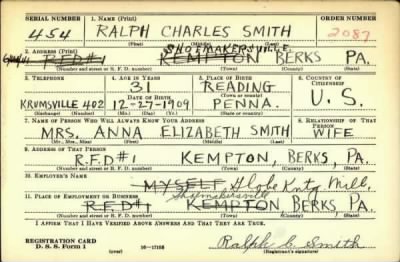 SERIAL NUMBER 1. NAME (Print) ORDER NUMBER
454 RALPH CHARLES SMITH 2087
(First) (Middle) (Last)
SHOEMAKERSVILLE
2. ADDRESS (Print)
R.F.D#1 KEMPTON BERKS PA.
(Number and street or R. F. D. number) (Town) (County) (State)
3. TELEPHONE 4. AGE IN YEARS 5. PLACE OF BIRTH 6. COUNTRY OF CITIZENSHIP
31 READING
DATE OF BIRTH (Town or county)
KRUMSVILLE 402 12-27-1909 PENNA. U.S.
(Exchange) (Number) (Mo.) (Day) (Yr.) (State or country)
7. NAME OF PERSON WHO WILL ALWAYS KNOW YOUR ADDRESS 8. RELATIONSHIP OF THAT PERSON
MRS. ANNA ELIZABETH SMITH WIFE
(Mr., Mrs., Miss) (First) (Middle) (Last)
9. ADDRESS OF THAT PERSON
R.F.D#1 KEMPTON, BERKS, PA.
(Number and street or R. F. D. number) (Town) (County) (State)
10. EMPLOYER'S NAME
MYSELF Globe Kntg Mill.
11. PLACE OF EMPLOYMENT OR BUSINESS Shoemakersville
R.F.D#1 KEMPTON BERKS PA.
(Number and street or R. F. D. number) (Town) (County) (State)
I AFFIRM THAT I HAVE VERIFIED ABOVE ANSWERS AND THAT THEY ARE TRUE.
REGISTRATION CARD
D. S. S. Form 1 (over) 16—17105 Ralph C. Smith
(Registrant's signature)